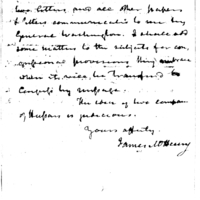 two letters and all other papers
& letters communicated to me by
General Washington. I shall add
some matters to the subjects for con-
gressional provisions they
when it rise, be transferred to
Congress by message.
The idea of two companies
of Hussars is judicious.
Yours affecty.
James McHenry